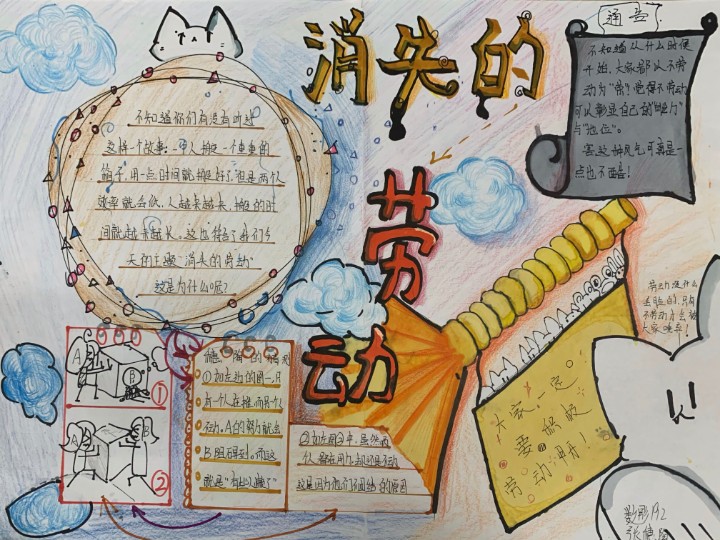 消失的
劳动
不知道你们有没有听过
这样一个故事：一个人搬一个重重的
箱子，用一点时间就搬好了，但是两个人
效率就会低，人越来越长，搬的时
间就越来越长。这也符合了我们今
天的主题“消失的劳动”
这是为什么呢？
通告
不知道从什么时候
开始，大家都以不劳
动为“荣”觉得不劳动
可以彰显自己的“魅力”
与“地位”。
害这种风气可真是一
点也不酷！
A
B
①
A
B
②
①如左边的图一，只
有一个人在推，而另个人
不动，A的努力就会
被B阻碍到，而这
就是“有坑懒了”
②如左图②中，虽然两
个人都在用力，却还是不动
这是因为他们不团结的原因
劳动没什么
丢脸的，只有
不劳动才会被
大家唾弃！
大家一定
要积极
劳动哦！